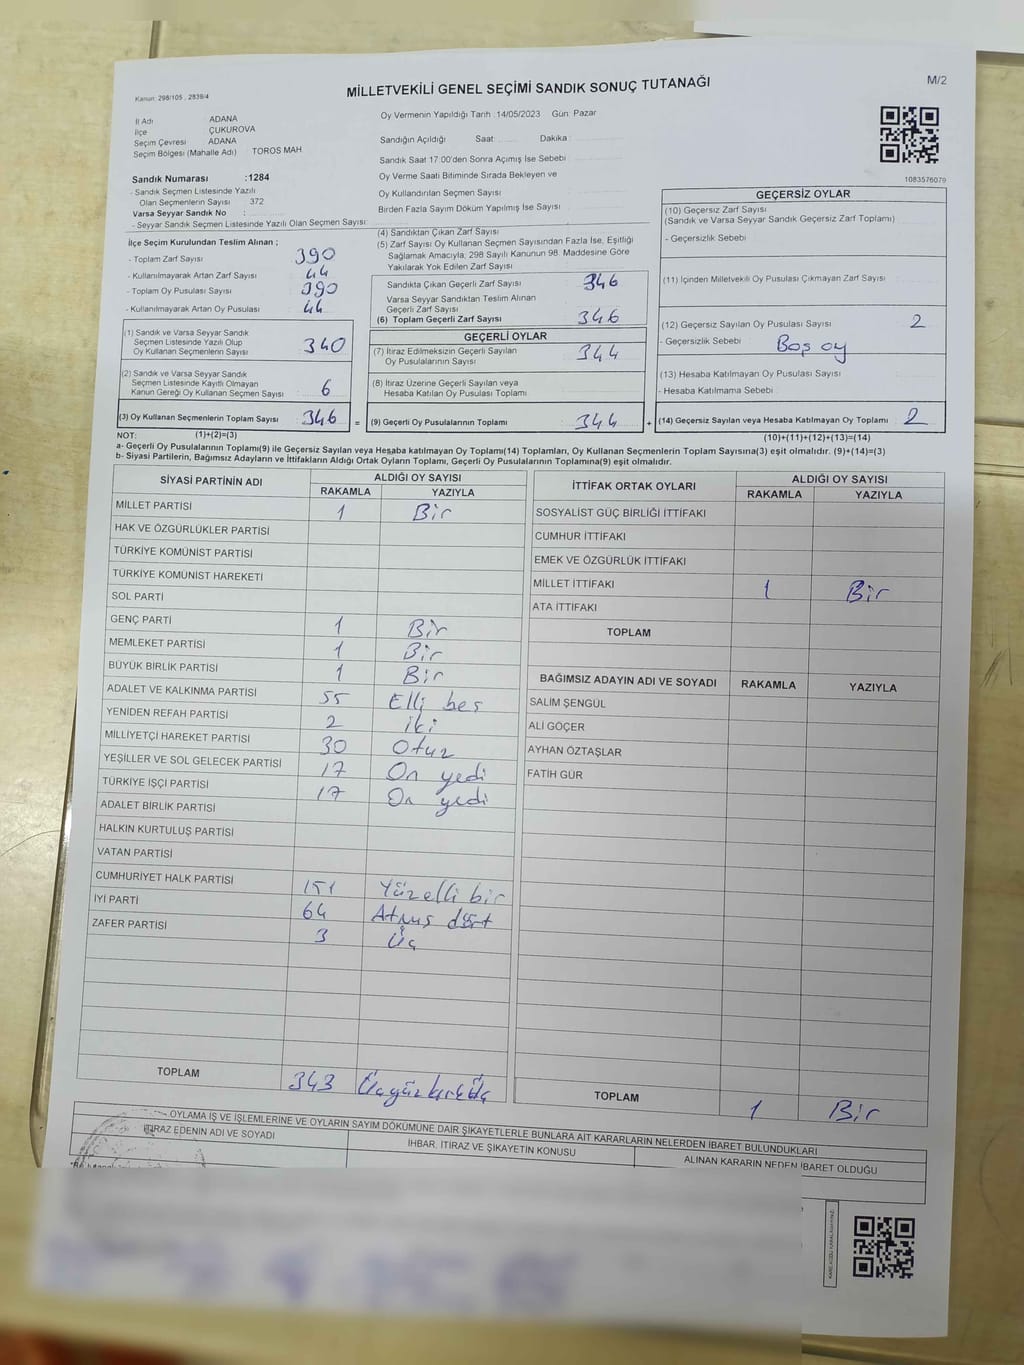 MİLLETVEKİLİ GENEL SEÇİMİ SANDIK SONUÇ TUTANAĞI
M/2
Kanun: 298/105 , 2839/4
İl Adı ADANA
İlçe ÇUKUROVA
Seçim Çevresi ADANA
Seçim Bölgesi (Mahalle Adı) TOROS MAH.
Oy Vermenin Yapıldığı Tarih :14/05/2023 Gün: Pazar
Sandığın Açıldığı Saat: Dakika:
Sandık Saat 17:00'den Sonra Açımış İse Sebebi
Oy Verme Saati Bitiminde Sırada Bekleyen ve
Oy Kullandırılan Seçmen Sayısı
Birden Fazla Sayım Döküm Yapılmış İse Sayısı
1083576079
Sandık Numarası :1284
- Sandık Seçmen Listesinde Yazılı
Olan Seçmenlerin Sayısı 372
Varsa Seyyar Sandık No :
- Seyyar Sandık Seçmen Listesinde Yazılı Olan Seçmen Sayısı
İlçe Seçim Kurulundan Teslim Alınan ;
- Toplam Zarf Sayısı 390
- Kullanılmayarak Artan Zarf Sayısı 44
- Toplam Oy Pusulası Sayısı 390
- Kullanılmayarak Artan Oy Pusulası 44
(1) Sandık ve Varsa Seyyar Sandık
Seçmen Listesinde Yazılı Olup
Oy Kullanan Seçmenlerin Sayısı 340
(2) Sandık ve Varsa Seyyar Sandık
Seçmen Listesinde Kayıtlı Olmayan
Kanun Gereği Oy Kullanan Seçmen Sayısı 6
(3) Oy Kullanan Seçmenlerin Toplam Sayısı 346 =
(1)+(2)=(3)
(4) Sandıktan Çıkan Zarf Sayısı
(5) Zarf Sayısı Oy Kullanan Seçmen Sayısından Fazla İse, Eşitliği
Sağlamak Amacıyla, 298 Sayılı Kanunun 98. Maddesine Göre
Yakılarak Yok Edilen Zarf Sayısı
Sandıkta Çıkan Geçerli Zarf Sayısı 346
Varsa Seyyar Sandıktan Teslim Alınan
Geçerli Zarf Sayısı
(6) Toplam Geçerli Zarf Sayısı 346
GEÇERLİ OYLAR
(7) İtiraz Edilmeksizin Geçerli Sayılan
Oy Pusulalarının Sayısı 344
(8) İtiraz Üzerine Geçerli Sayılan veya
Hesaba Katılan Oy Pusulası Toplamı
(9) Geçerli Oy Pusulalarının Toplamı 344 +
GEÇERSİZ OYLAR
(10) Geçersiz Zarf Sayısı
(Sandık ve Varsa Seyyar Sandık Geçersiz Zarf Toplamı)
- Geçersizlik Sebebi
(11) İçinden Milletvekili Oy Pusulası Çıkmayan Zarf Sayısı
(12) Geçersiz Sayılan Oy Pusulası Sayısı 2
- Geçersizlik Sebebi Boş oy
(13) Hesaba Katılmayan Oy Pusulası Sayısı
- Hesaba Katılmama Sebebi
(14) Geçersiz Sayılan veya Hesaba Katılmayan Oy Toplamı 2
(10)+(11)+(12)+(13)=(14)
NOT:
a- Geçerli Oy Pusulalarının Toplamı(9) ile Geçersiz Sayılan veya Hesaba katılmayan Oy Toplamı(14) Toplamları, Oy Kullanan Seçmenlerin Toplam Sayısına(3) eşit olmalıdır. (9)+(14)=(3)
b- Siyasi Partilerin, Bağımsız Adayların ve İttifakların Aldığı Ortak Oyların Toplamı, Geçerli Oy Pusulalarının Toplamına(9) eşit olmalıdır.
SİYASİ PARTİNİN ADI ALDIĞI OY SAYISI
RAKAMLA YAZIYLA
MİLLET PARTİSİ 1 Bir
HAK VE ÖZGÜRLÜKLER PARTİSİ
TÜRKİYE KOMÜNİST PARTİSİ
TÜRKİYE KOMÜNİST HAREKETİ
SOL PARTİ
GENÇ PARTİ 1 Bir
MEMLEKET PARTİSİ 1 Bir
BÜYÜK BİRLİK PARTİSİ 1 Bir
ADALET VE KALKINMA PARTİSİ 55 Elli beş
YENİDEN REFAH PARTİSİ 2 iki
MİLLİYETÇİ HAREKET PARTİSİ 30 Otuz
YEŞİLLER VE SOL GELECEK PARTİSİ 17 On yedi
TÜRKİYE İŞÇİ PARTİSİ 17 On yedi
ADALET BİRLİK PARTİSİ
HALKIN KURTULUŞ PARTİSİ
VATAN PARTİSİ
CUMHURİYET HALK PARTİSİ 151 Yüzelli bir
İYİ PARTİ 64 Atmış dört
ZAFER PARTİSİ 3 Üç
TOPLAM 343 Üçyüz kırk üç
İTTİFAK ORTAK OYLARI ALDIĞI OY SAYISI
RAKAMLA YAZIYLA
SOSYALİST GÜÇ BİRLİĞİ İTTİFAKI
CUMHUR İTTİFAKI
EMEK VE ÖZGÜRLÜK İTTİFAKI
MİLLET İTTİFAKI 1 Bir
ATA İTTİFAKI
TOPLAM
BAĞIMSIZ ADAYIN ADI VE SOYADI RAKAMLA YAZIYLA
SALİM ŞENGÜL
ALİ GÖÇER
AYHAN ÖZTAŞLAR
FATİH GÜR
TOPLAM 1 Bir
OYLAMA İŞ VE İŞLEMLERİNE VE OYLARIN SAYIM DÖKÜMÜNE DAİR ŞİKAYETLERLE BUNLARA AİT KARARLARIN NELERDEN İBARET BULUNDUKLARI
İTİRAZ EDENİN ADI VE SOYADI İHBAR, İTİRAZ VE ŞİKAYETİN KONUSU ALINAN KARARIN NEDEN İBARET OLDUĞU